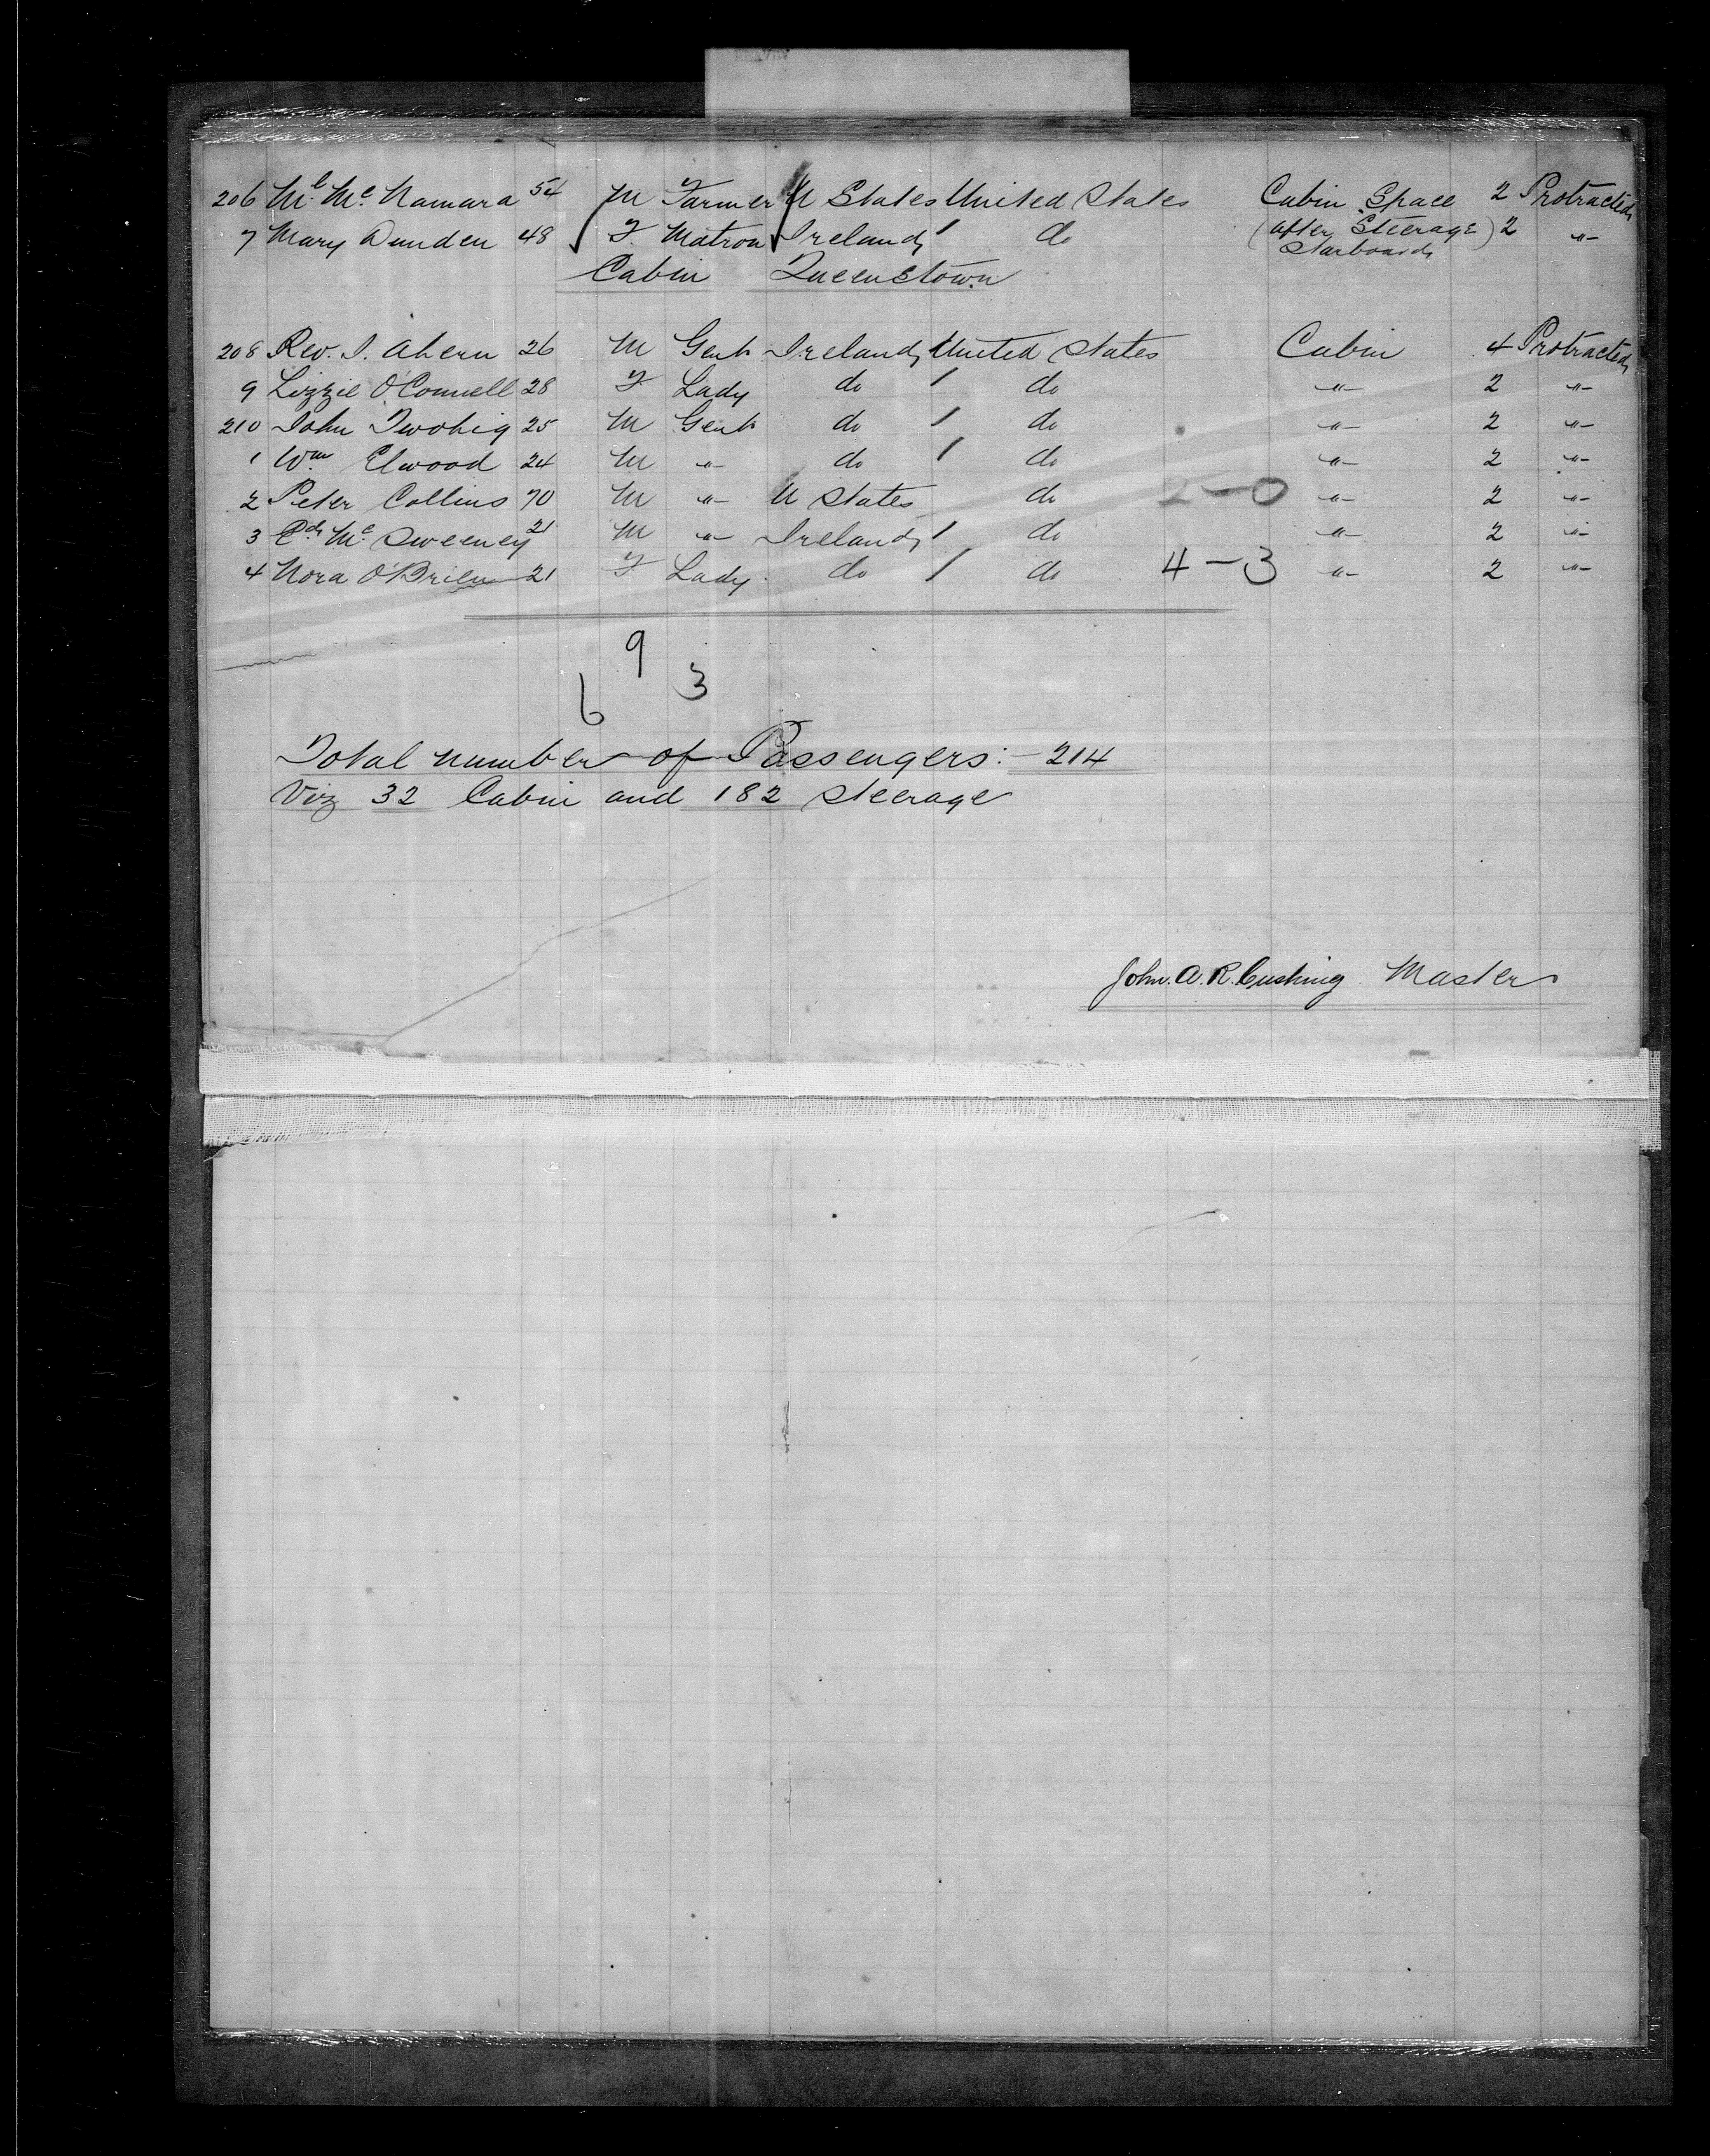 206 Ml. Mc Namara 54 M Farmer U States United States Cabin Space 2 Protracted
7 Mary Dunden 48 F. Matron Ireland / do (after Steerage) 2 -"-
Starboard
Cabin Queenstown
208 Rev. I. Ahern 26 M Gent Ireland / United States Cabin 4 Protracted
9 Lizzie O'Connell 28 F Lady do / do -"- 2 -"-
210 John Twohig 25 M Gent do / do -"- 2 -"-
1 Wm Elwood 24 M -"- do / do -"- 2 -"-
2 Peter Collins 70 M -"- U States do 2-0 -"- 2 -"-
3 Ed. Mc Sweeney 21 M -"- Ireland / do -"- 2 -"-
4 Nora O'Brien 21 F Lady do / do 4-3 -"- 2 -"-
9
6 3
Total number of Passengers:- 214
Viz 32 Cabin and 182 Steerage
John. A. R. Cushing Master